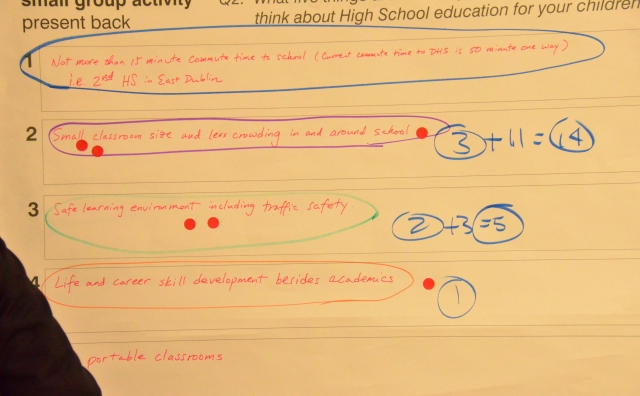 small group activity
present back
Q2. What five things
think about High School education for your children
1
Not more than 15 minute commute time to school (Current commute time to DHS is 50 minute one way)
i.e. 2nd HS in East Dublin
2
Small classroom size and less crowding in and around school
3 + 11 = 14
3
Safe learning environment including traffic safety.
2 + 3 = 5
4
Life and career skill development besides academics
1
portable classrooms